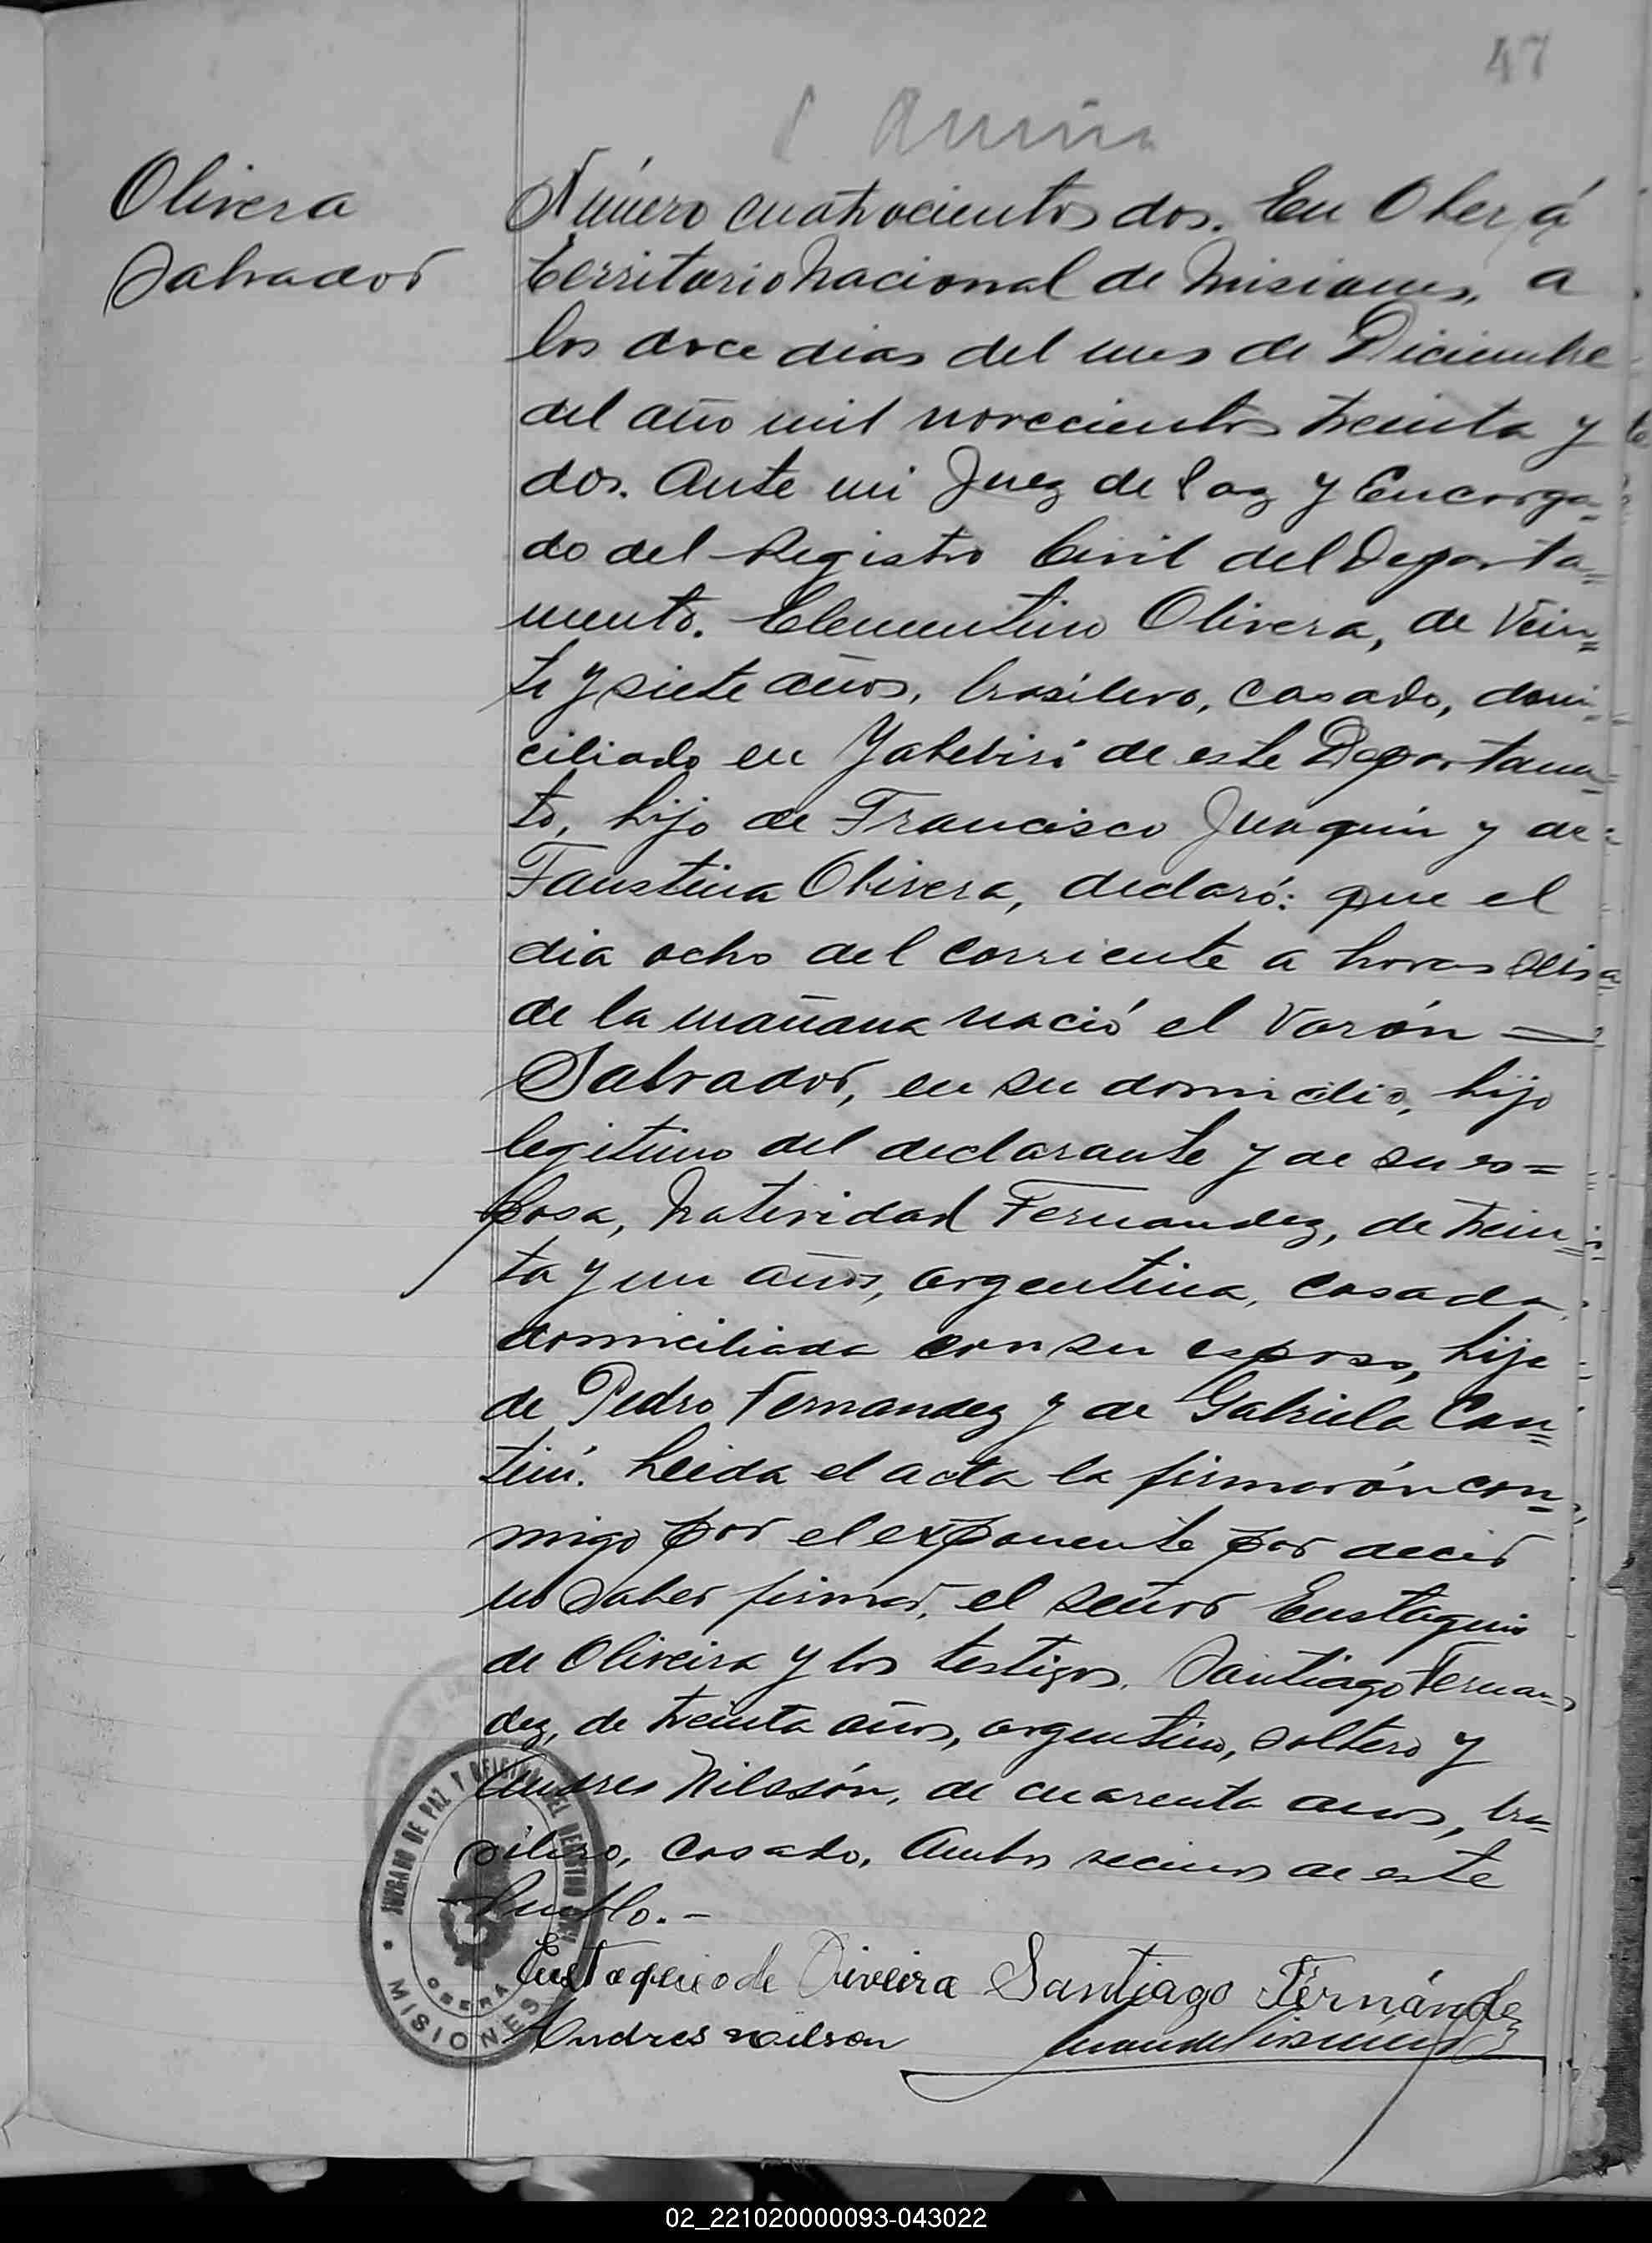 47
Olivera
Salvador
Número cuatrocientos dos. En Oberá
Territorio Nacional de Misiones, a
los doce dias del mes de Diciembre
del año mil novecientos treinta y
dos. Ante mi Juez de Paz y Encarga=
do del Registro Civil del Departa=
mento. Clementino Olivera, de Vein=
te y siete años, brasilero, casado, domi=
ciliado en Yabebiri de este Departamen=
to, hijo de Francisco Juaquin y de
Faustina Olivera, declaró: que el
dia ocho del corriente a horas seis
de la mañana nació el Varón =
Salvador, en su domicilio, hijo
legitimo del declarante y de su es=
posa, Natividad Fernandez, de trein=
ta y un años, argentina, casada,
domiciliada con su esposo, hija
de Pedro Fernandez y de Gabriela
Leida el acta la firmarón con=
migo por el exponente por decir
no saber firmar, el señor Eustaquio
de Oliveira y los testigos, Santiago Fernan=
dez, de treinta años, argentino, soltero y
Andres Nilssón, de cuarenta anos, bra=
silero, casado, Ambos vecinos de este
Pueblo.-
Eustaquio de Oiveira Santiago Fernández
Andres nilson
JUZGADO DE PAZ Y OFICINA DEL REGISTRO CIVIL
OBERA
MISIONES
02_221020000093-043022